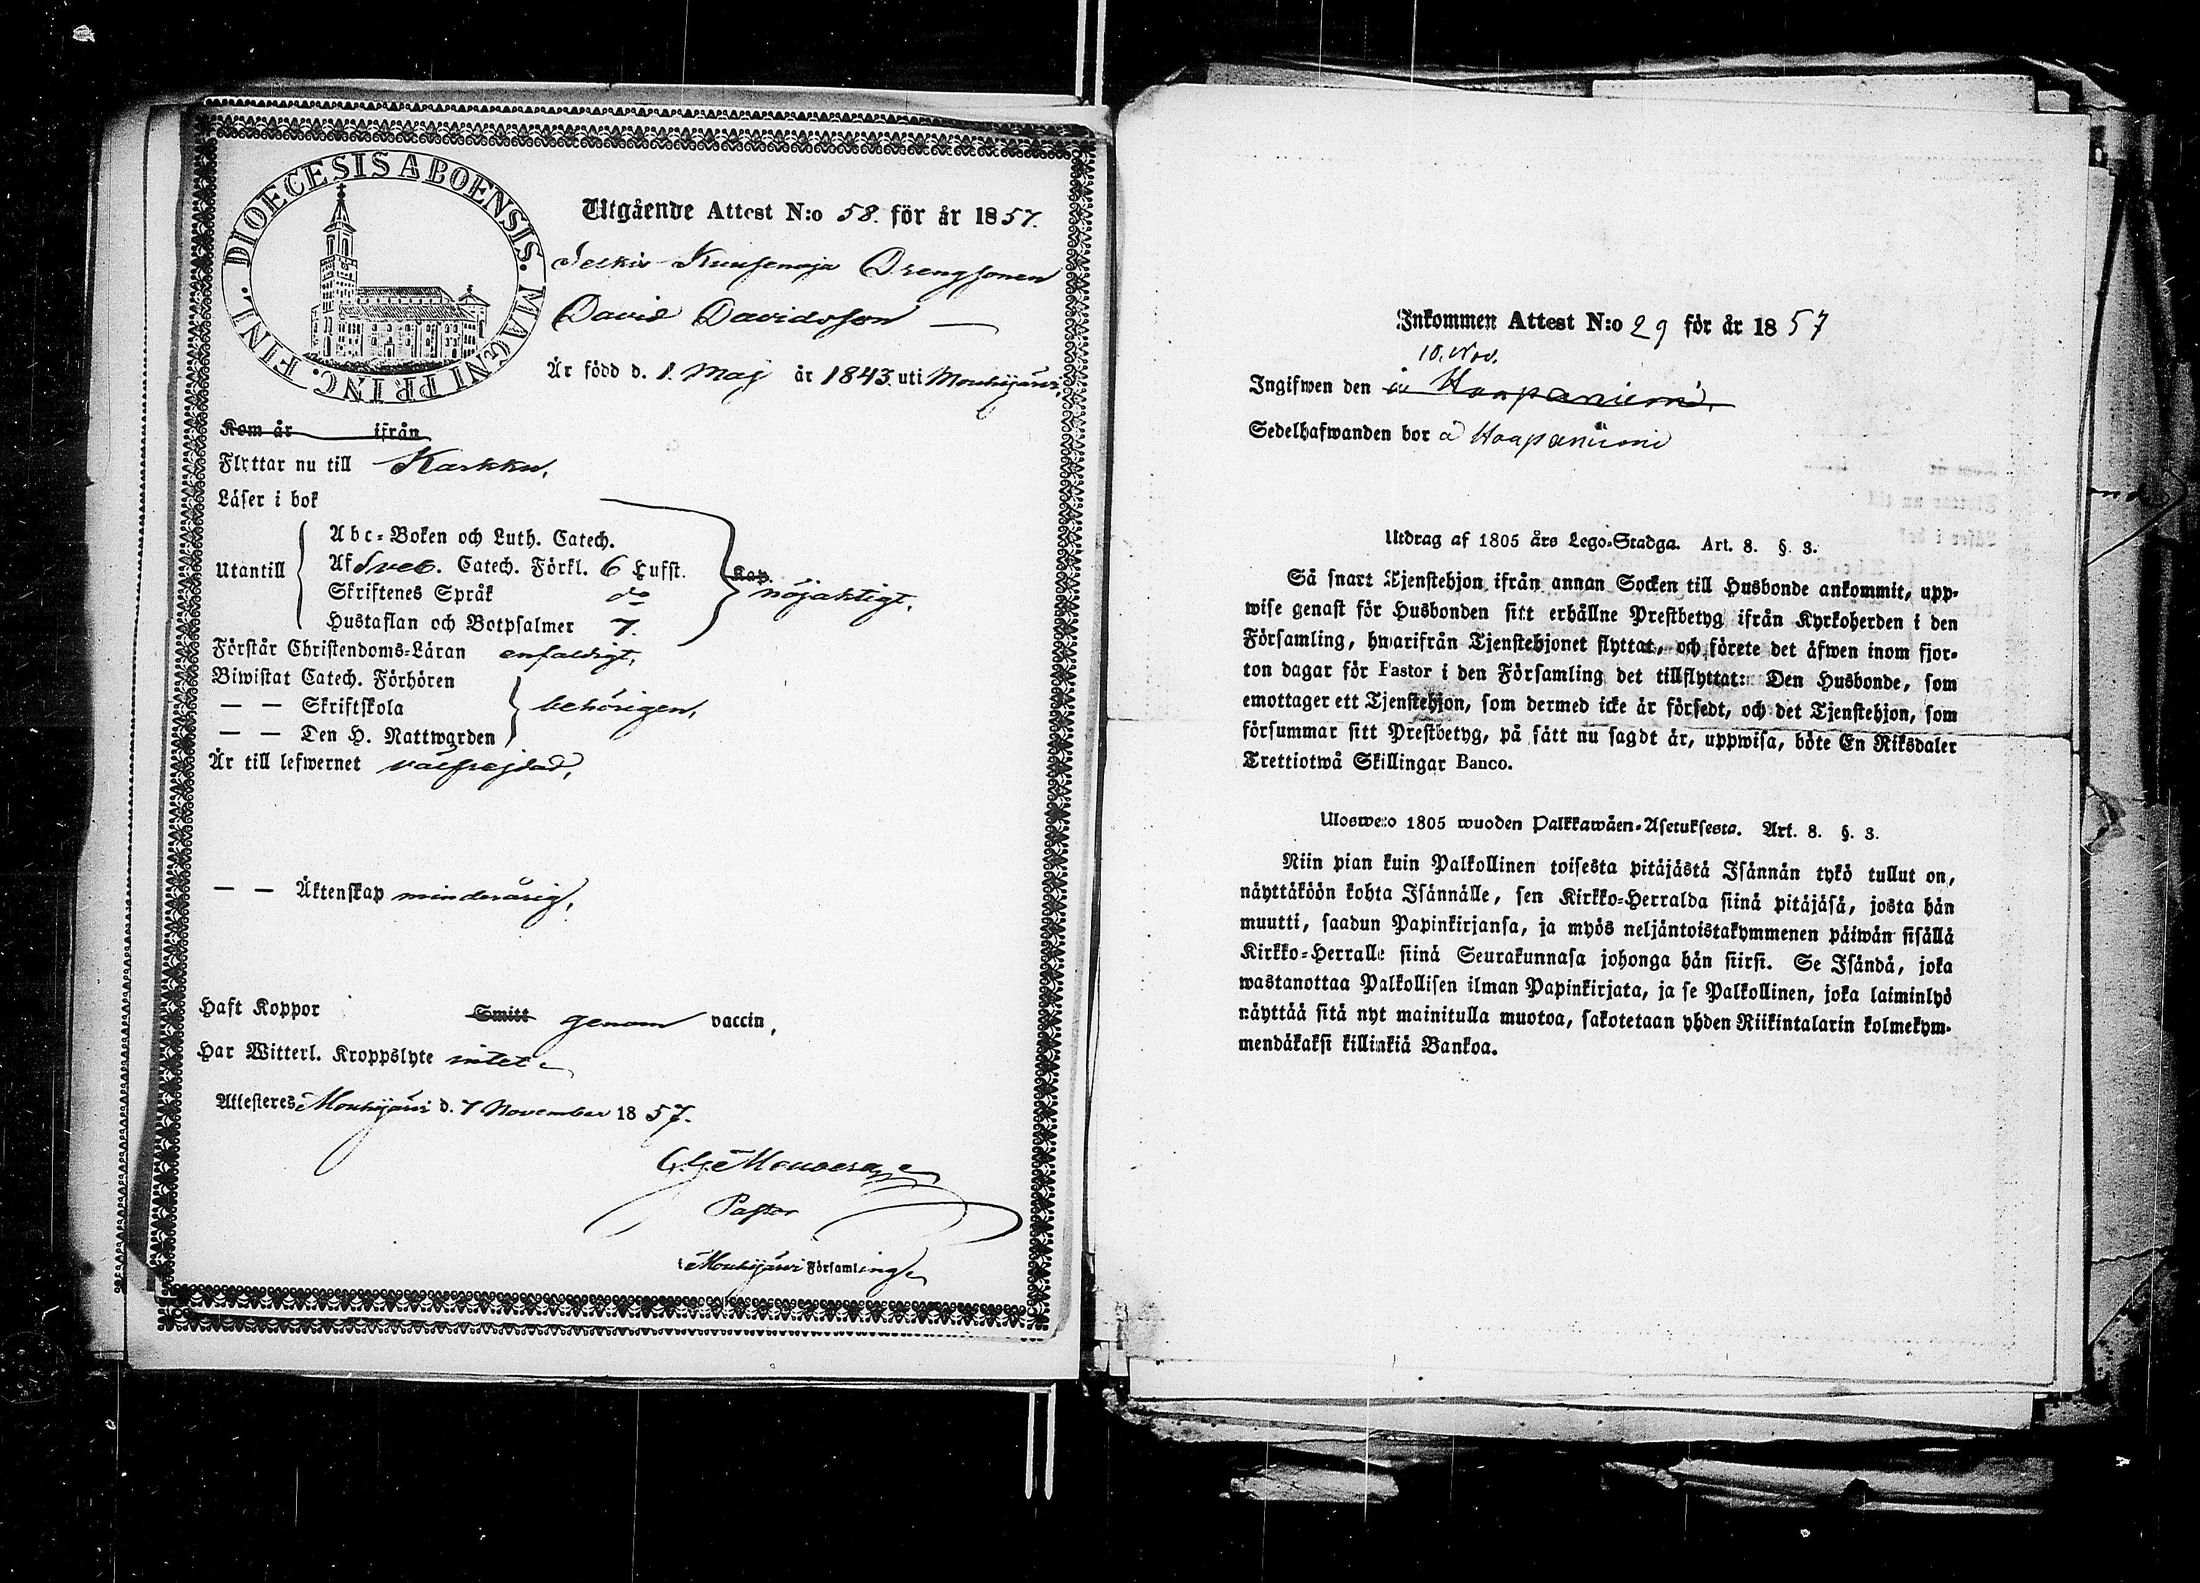 DIOECESIS ABOENSIS. MAGNI PRINC. FINL.
Utgående Attest N:o 58. för år 1857.
Selkis Kuusenoja Drengsonen
David Davidsson
Är född d. 1. Maj år 1843. uti Mouhijärvi,
Kom år ifrån
Flyttar nu till Karkku,
Läser i bok
Utantill
Abc-Boken och Luth. Catech.
Af Sveb. Catech. Förkl. 6 Hufst.
Skriftens Språk do
Hustaflan och Botpsalmer 7.
Kap.
nöjaktigt,
Förstår Christendoms-Läran enfaldigt,
Biwistat Catech. Förhören
— — Skriftskola
— — Den H. Nattwarden
behörigen,
Är till lefwernet välfrejdad,
— — Äktenskap minderårig,
Haft Koppor Smitt genom vaccin,
Har Witterl. Kroppslyte intet
Attesteres Mouhijärvi d. 7 November 1857.
Pastor
i Mouhijärvi Församling
Inkommen Attest N:o 29 för år 1857
10. Nov.
Ingifwen den å Haapaniemi,
Sedelhafwanden bor å Haapaniemi
Utdrag af 1805 års Lego-Stadga. Art. 8. §. 3.
Så snart Tjenstehjon ifrån annan Socken till Husbonde ankommit, upp-
wise genast för Husbonden sitt erhållne Prestbetyg ifrån Kyrkoherden i den
Församling, hwarifrån Tjenstehjonet flyttat, och förete det äfwen inom fjor-
ton dagar för Pastor i den Församling det tillflyttat: Den Husbonde, som
emottager ett Tjenstehjon, som dermed icke är försedt, och det Tjenstehjon, som
försummar sitt Prestbetyg, på sätt nu sagdt är, uppwisa, böte En Riksdaler
Trettiotwå Skillingar Banco.
Ulosweto 1805 wuoden Palkkawäen-Asetuksesta. Art. 8. §. 3.
Niin pian kuin Palkollinen toisesta pitäjästä Isännän tykö tullut on,
näyttäköön kohta Isännälle, sen Kirkko-Herralda siinä pitäjäsä, josta hän
muutti, saadun Papinkirjansa, ja myös neljäntoistakymmenen päiwän sisällä
Kirkko-Herralle siinä Seurakunnasa johonga hän siirsi. Se Isändä, joka
wastanottaa Palkollisen ilman Papinkirjata, ja se Palkollinen, joka laiminlyö
näyttää sitä nyt mainitulla muotoa, sakotetaan yhden Riikintalarin kolmekym-
mendäkaksi killinkiä Bankoa.